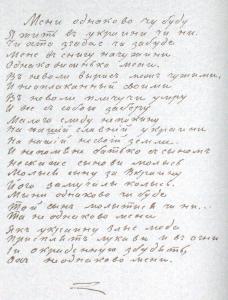 Мени однаково чи буду
Я жить въ украини чи ни.
Чи хто згадае чи забуде
Мене въ снигу на чужини
Однаковисинько мени.
Въ неволи вырисъ межъ чужими,
И неоплаканный своими
Въ неволи плачучи умру
И все зъ собою заберу
Малого слиду не покину
На нашій славній украини
На нашій не своій земли.
И не помяне батько зъ сыномъ
Не скаже сынови молысь
Молысь сыну за Вкраину
Його замучили колысь.
Мени однаково чи буде
Той сынъ молитися чи ни...
Та не однаково мени
Якъ украину злые люде
Присплять лукави и въ огни
Іи окраденную збудять,
Охъ не однаково мени.